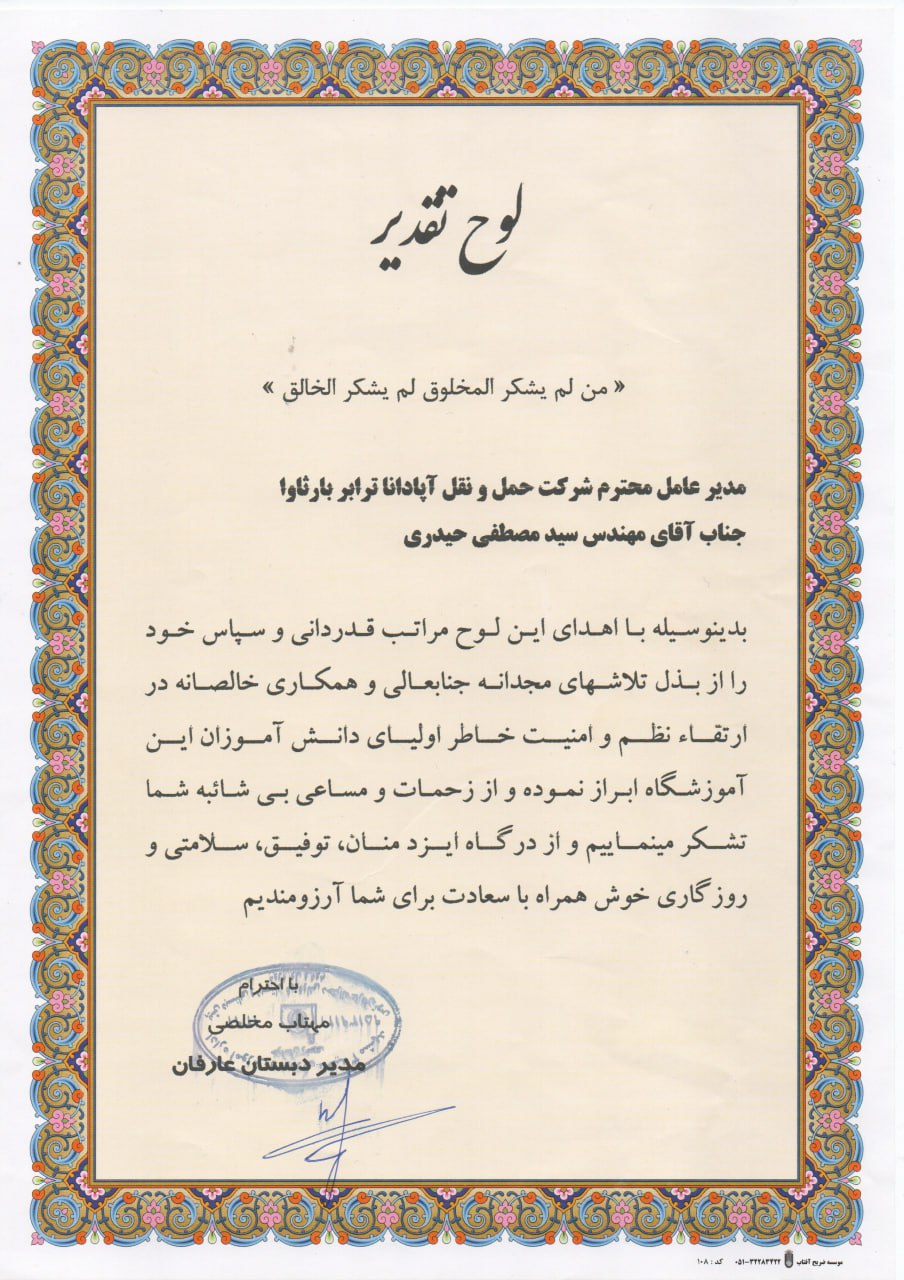 لوح تقدیر
« من لم یشکر المخلوق لم یشکر الخالق »
مدیر عامل محترم شرکت حمل و نقل آپادانا ترابر بارثاوا
جناب آقای مهندس سید مصطفی حیدری
بدینوسیله با اهدای این لوح مراتب قدردانی و سپاس خود
را از بذل تلاشهای مجدانه جنابعالی و همکاری خالصانه در
ارتقاء نظم و امنیت خاطر اولیای دانش آموزان این
آموزشگاه ابراز نموده و از زحمات و مساعی بی شائبه شما
تشکر مینماییم و از درگاه ایزد منان، توفیق، سلامتی و
روزگاری خوش همراه با سعادت برای شما آرزومندیم
با احترام
مهتاب مخلصی
مدیر دبستان عارفان
موسسه ضریح آفتاب ۰۵۱-۳۲۲۸۳۴۲۲ کد : ۱۰۸